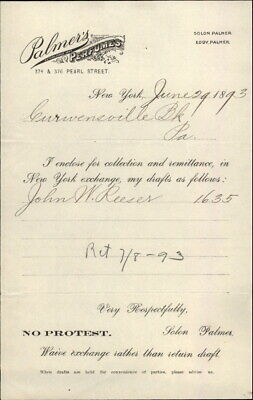 Palmer's
PERFUMES
374 & 376 PEARL STREET.
SOLON PALMER.
EDDY PALMER.
New York, June 29 1893
Curwensville Bk
Pa.
I enclose for collection and remittance, in
New York exchange, my drafts as follows:
John W. Reeser 1635
Ret 7/8-93
Very Respectfully,
NO PROTEST. Solon Palmer.
Waive exchange rather than return draft.
When drafts are held for convenience of parties, please advise us.